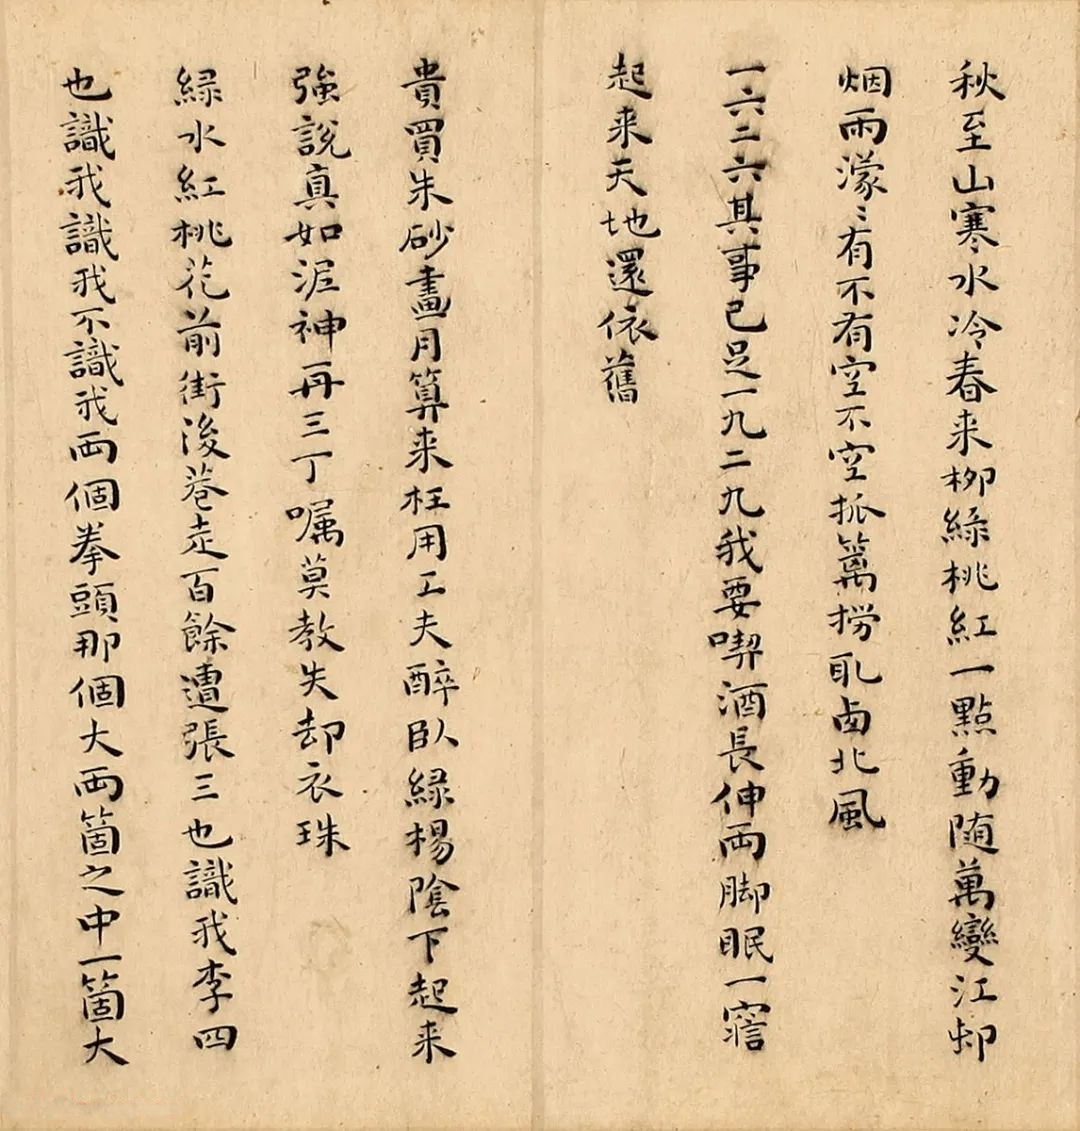 秋至山寒水冷春来柳綠桃紅一點動随萬變江邨
烟雨濛〻有不有空不空笊篱撈取西北風
一六二六其事已足一九二九我要喫酒長伸兩脚眠一寤
起来天地還依舊
貴買朱砂畫月算来枉用工夫醉臥綠楊陰下起来
強說真如泥神再三丁嘱莫教失却衣珠
綠水紅桃花前街後巷走百餘遭張三也識我李四
也識我識我不識我兩個拳頭那個大兩箇之中一箇大